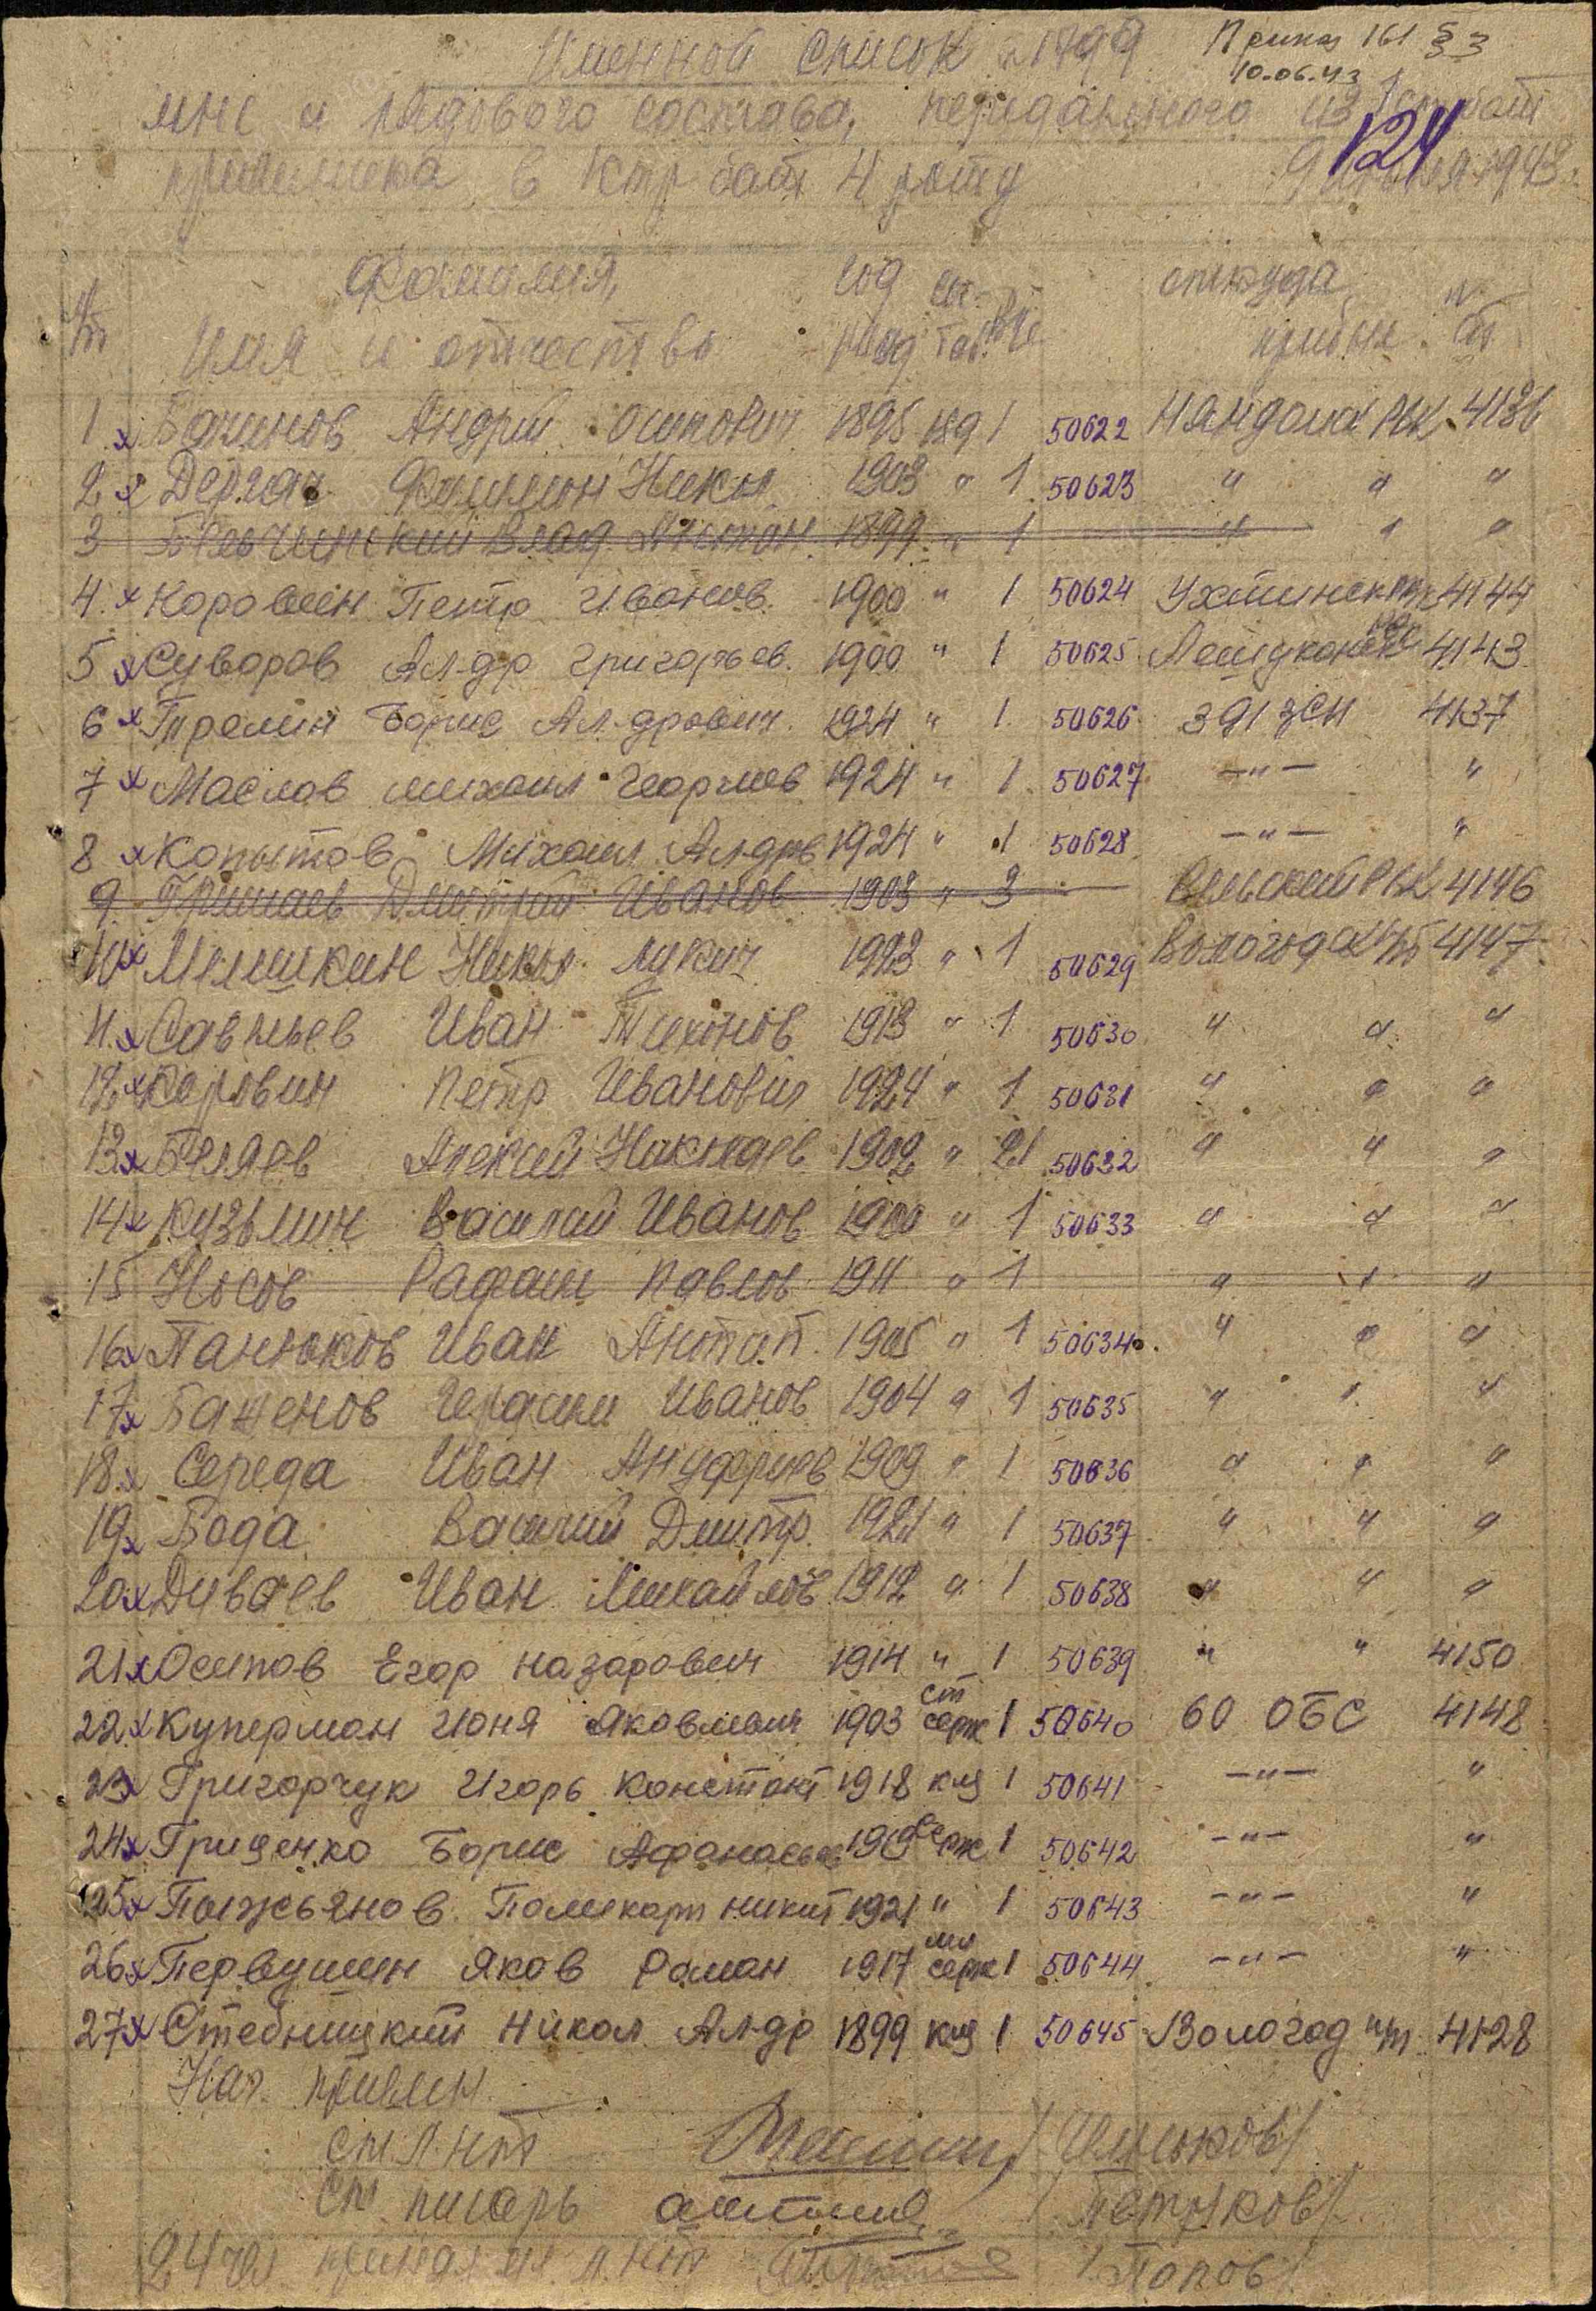 Именной список № 1799 Приказ 161 § 3
10.06.43
мнс и рядового состава, переданного из
124
приемника в 1 стр бат 4 роту 9 июня 1943
Фамилия, год откуда
имя и отчество рожд прибыл
1 x Бачинов Андрей Осипович 1895 189 1 50622 Няндомск РВК 4136
2 x Дергач Филимон Никол 1903 " 1 50623 " " "
3 Бельчинский Влад. Антон. 1899 " 1 " " "
4. x Коровин Петр Иванов. 1900 " 1 50624 Ухтинск РВК 4144
5 x Суворов Ал-др Григорьев. 1900 " 1 50625 Лешуконск РВК 4143
6 x Тролин Борис Ал-дрович 1924 " 1 50626 39 зсп 4137
7 x Маслов Михаил Георгиев 1924 " 1 50627 —"— "
8 x Копытов Михаил Ал-дров 1924 " 1 50628 —"— "
9. Гришаев Дмитрий Иванов 1903 " 3 Вельский РВК 4146
10 x Мемишкин Никол Лукич 1923 " 1 50629 Вологодск пп 4147
11. x Савельев Иван Тихонов 1913 " 1 50630 " " "
12 x Коровин Петр Иванович 1924 " 1 50631 " " "
13 x Беляев Алексей Николаев 1902 " 21 50632 " " "
14 x Кузьмин Василий Иванов 1900 " 1 50633 " " "
15 Носов Рафаил Павлов 1911 " 1 " " "
16 x Панюков Иван Антип. 1905 " 1 50634 " " "
17 x Баженов Герасим Иванов 1904 " 1 50635 " " "
18 x Середа Иван Ануфриев 1909 " 1 50636 " " "
19 x Бода Василий Дмитр. 1921 " 1 50637 " " "
20 x Диваев Иван Михайлов 1912 " 1 50638 " " "
21 x Осипов Егор Назарович 1914 " 1 50639 " " 4150
22. x Куперман Ионя Яковлевич 1903 ст серж 1 50640 60 ОБС 4148
23 x Григорчук Игорь Констант 1918 к-ц 1 50641 —"— "
24 x Гриценко Борис Афанасьев 1919 серж 1 50642 —"— "
25 x Полжьянов Поликарп Никит 1921 " 1 50643 —"— "
26 x Первушин Яков Роман 1917 мл серж 1 50644 —"— "
27 x Стебницкий Никол Ал-др 1899 к-ц 1 50645 Вологод пп 4128
Нач. приемн.
ст л-нт /Иньков/
ст писарь /Петухов/
24 чел принял мл. л-нт /Попов/